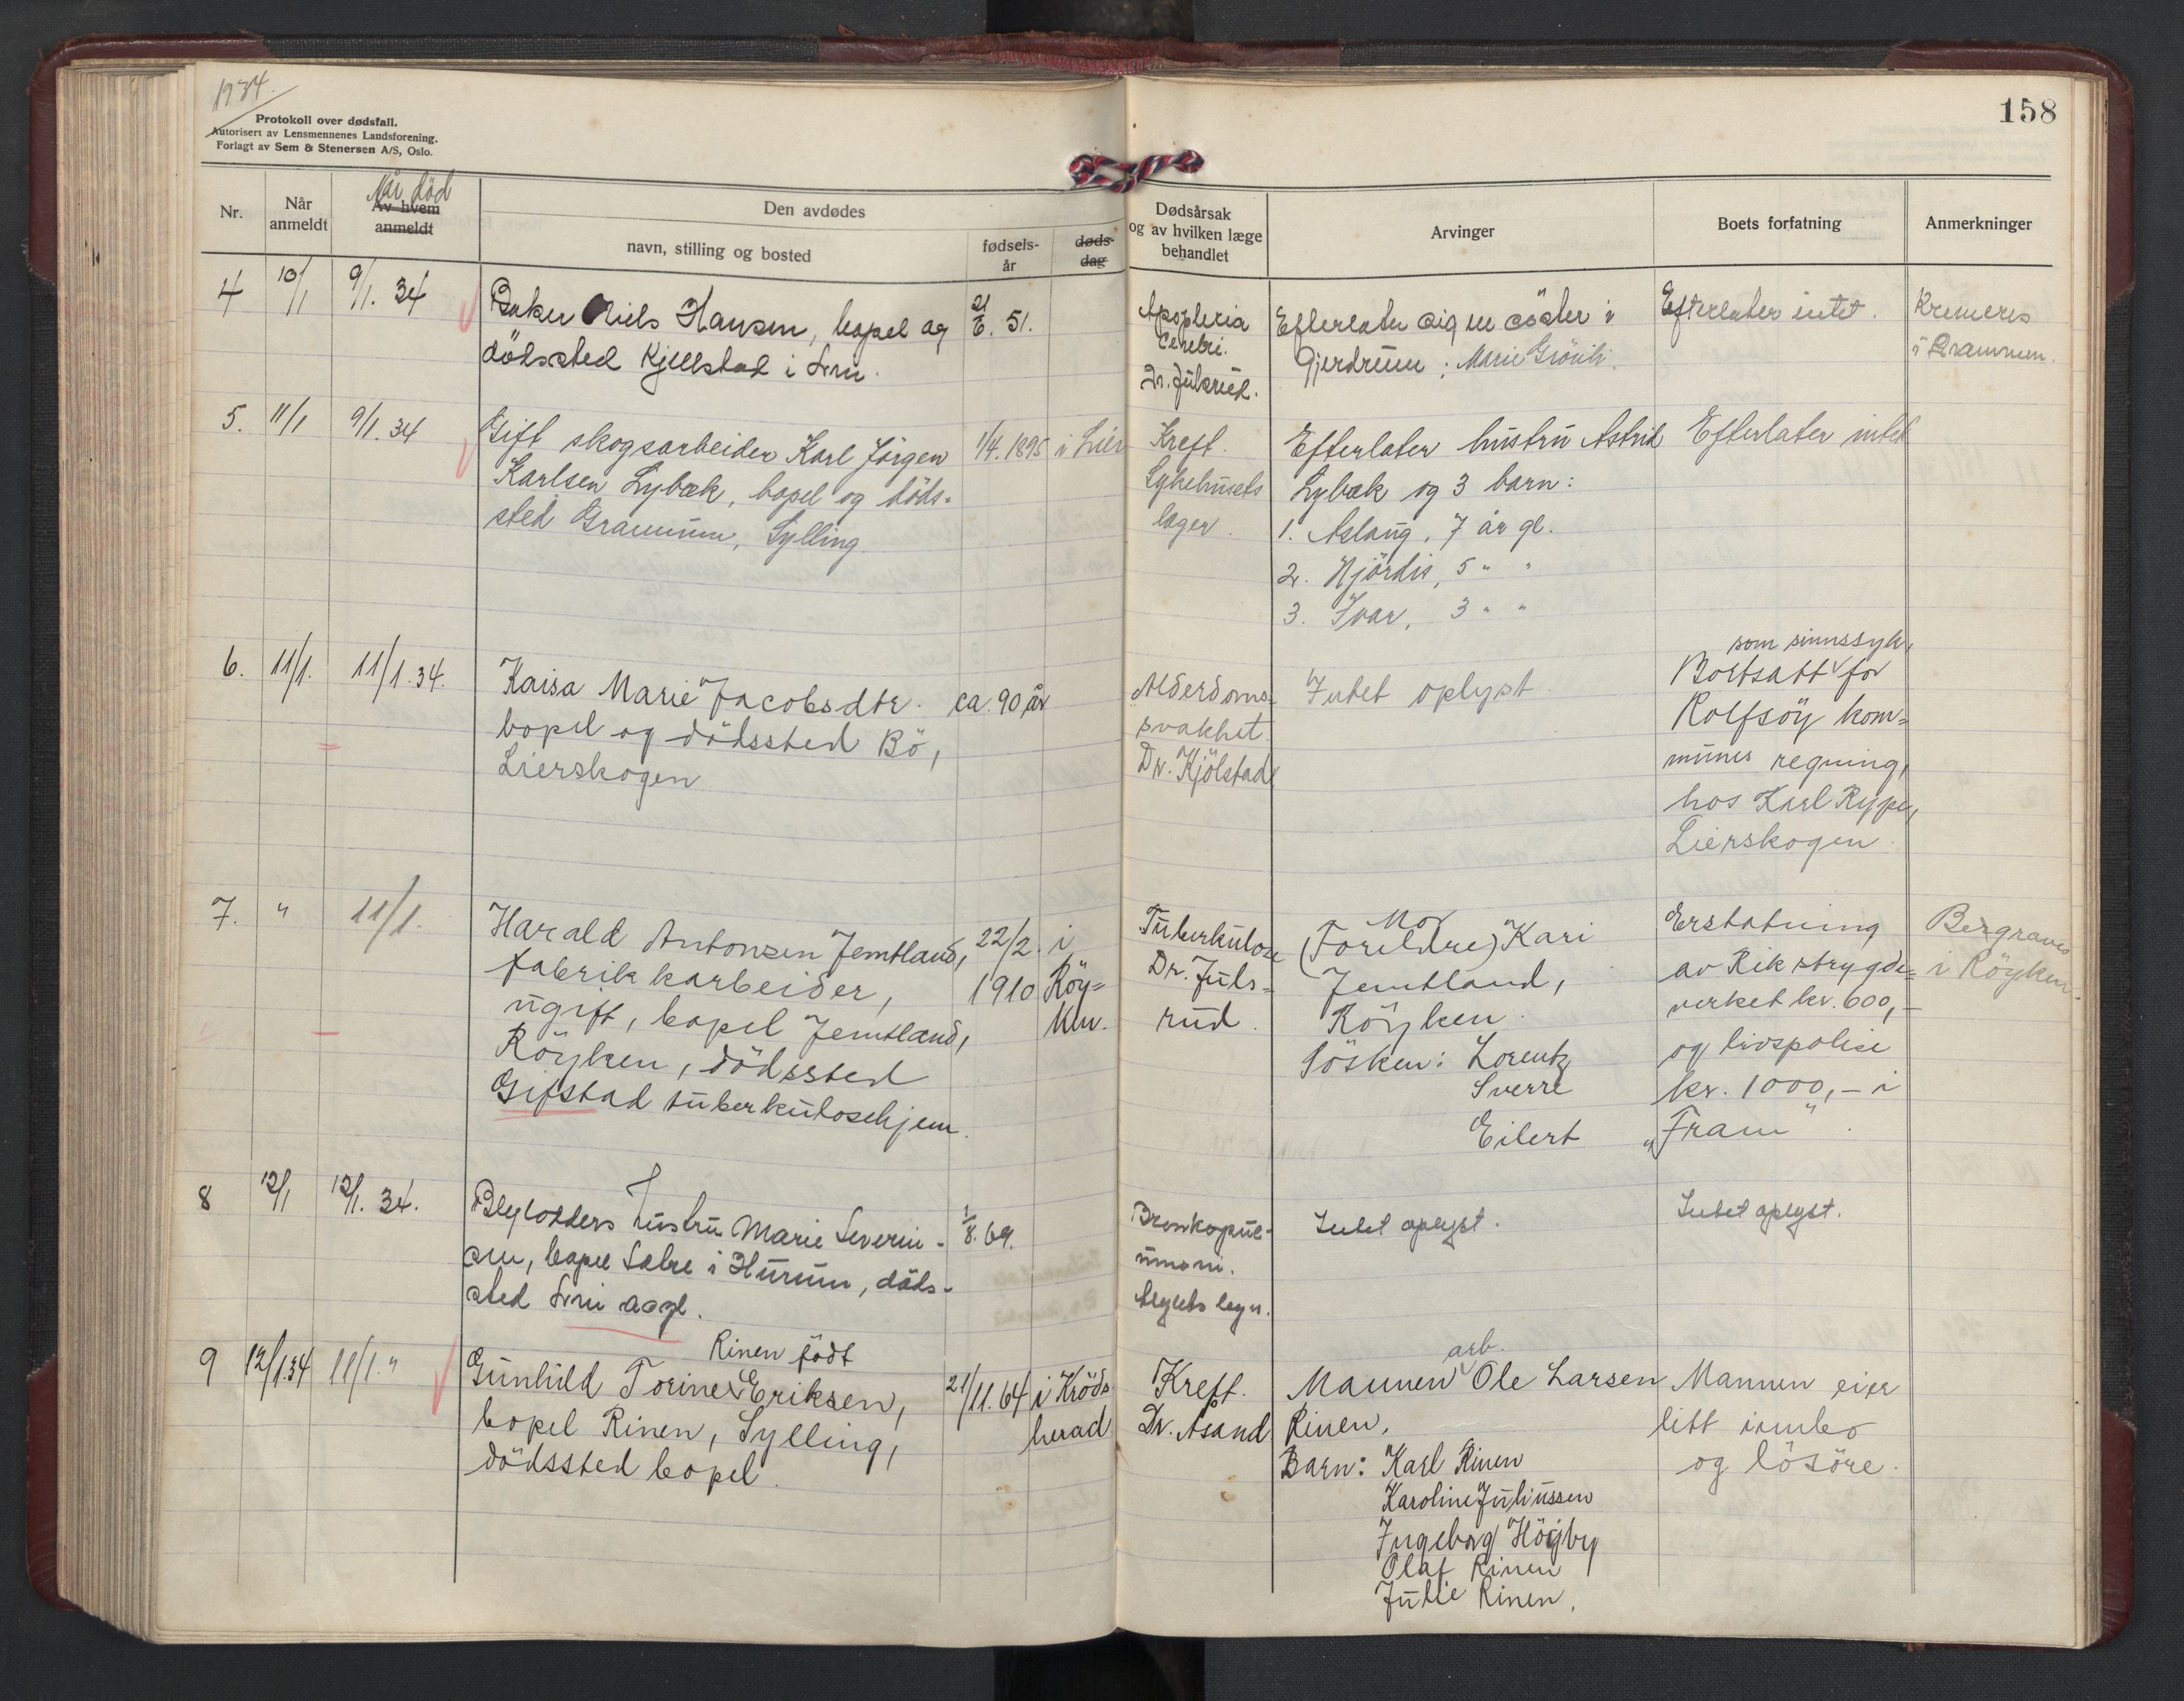 1934.
Protokoll over dødsfall.
Autorisert av Lensmennenes Landsforening.
Forlagt av Sem & Stenersen A/S, Oslo.
158
Nr.
Når anmeldt
Når död
Av hvem anmeldt
Den avdødes
navn, stilling og bosted
fødsels-år
døds-dag
Dødsårsak
og av hvilken læge
behandlet
Arvinger
Boets forfatning
Anmerkninger
4
10/1
9/1. 34
Baker Niels Hansen, bopel og
dödssted Kjellstad i Lier.
21/6. 51.
Apoplexia
Cerebri.
Dr. Julsrud.
Efterlater sig en söster i
Gjerdrum: Marie Grönli.
Efterlater intet.
Kremeres
i Drammen.
5.
11/1
9/1. 34
Gift skogsarbeider Karl Jörgen
Karlsen Lybæk, bopel og döds-
sted Gramum, Sylling.
1/4. 1895
i Lier
Kreft.
Sykehusets
læger.
Efterlater hustru Astrid
Lybæk og 3 barn:
1. Aslaug, 7 år gl.
2. Hjördis, 5 " "
3. Ivar, 3 " "
Efterlater intet
6.
11/1.
11/1. 34.
Kaisa Marie Jacobsdtr.
bopel og dödssted Bö,
Lierskogen
ca. 90 år
Alderdoms-
svakhet
Dr. Kjölstad
Intet oplyst.
som sinnssyk,
Bortsatt for
Rolfsöy kom-
munes regning,
hos Karl Rype,
Lierskogen.
7.
"
11/1.
Harald Antonsen Jemtland,
fabrikkarbeider,
ugift, bopel Jemtland,
Röyken, dödssted
Gifstad tuberkulosehjem.
22/2.
1910
i
Röy-
ken.
Tuberkulose
Dr. Juls-
rud.
Mor
(Foreldre) Kari
Jemtland,
Röyken.
Sösken: Lorentz
Sverre
Eilert
Erstatning
av Rikstrygde-
verket kr. 600,-
og livspolise
kr. 1000,- i
"Fram".
Begraves
i Röyken.
8
12/1
12/1. 34.
hustru Marie Severin-
sen, bopel Sætre i Hurum, döds-
sted Lier asyl.
1/8. 69.
Bronkopne-
umoni.
Asylets læge.
Intet oplyst.
Intet oplyst.
9
12/1 34
11/1. "
Rinen födt
Gunhild Torine Eriksen,
bopel Rinen, Sylling,
dödssted bopel.
21/11. 64
i Kröds-
herad
Kreft.
Dr. Åsand
arb.
Mannen Ole Larsen
Rinen.
Barn: Karl Rinen
Karoline Juliussen
Ingeborg Höijby
Olaf Rinen
Julie Rinen.
Mannen eier
litt innbo
og lösöre.